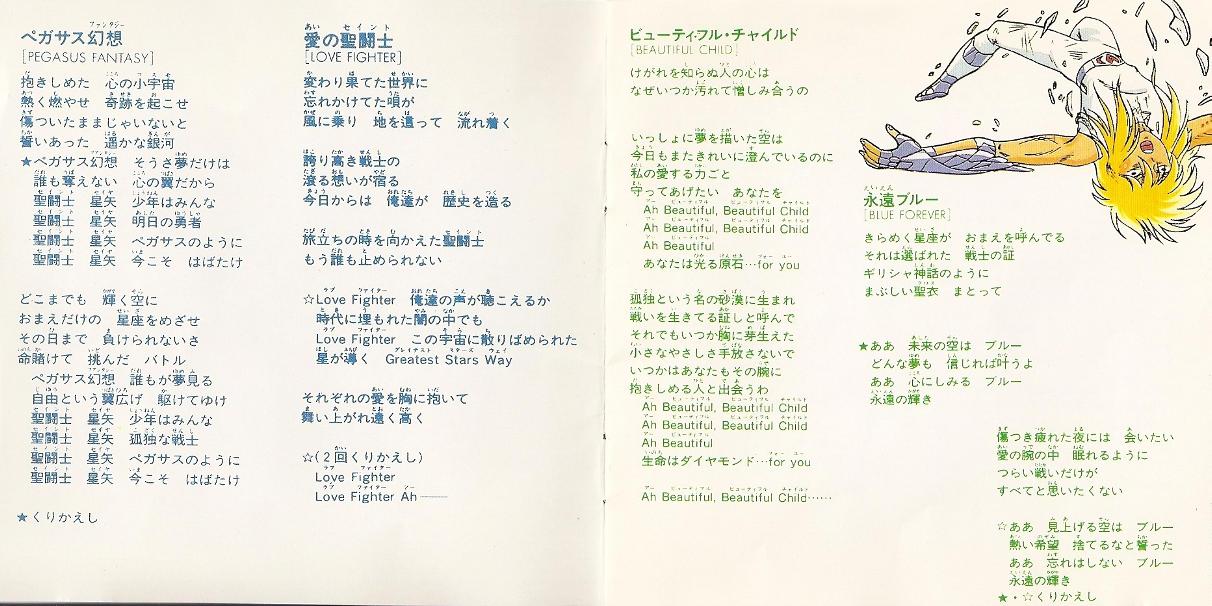 ペガサス幻想
[PEGASUS FANTASY]
抱きしめた　心の小宇宙
熱く燃やせ　奇跡を起こせ
傷ついたままじゃいないと
誓いあった　遥かな銀河
★ペガサス幻想　そうさ夢だけは
誰も奪えない　心の翼だから
聖闘士　星矢　少年はみんな
聖闘士　星矢　明日の勇者
聖闘士　星矢　ペガサスのように
聖闘士　星矢　今こそ　はばたけ
どこまでも　輝く空に
おまえだけの　星座をめざせ
その日まで　負けられないさ
命賭けて　挑んだ　バトル
ペガサス幻想　誰もが夢見る
自由という翼広げ　駆けてゆけ
聖闘士　星矢　少年はみんな
聖闘士　星矢　孤独な戦士
聖闘士　星矢　ペガサスのように
聖闘士　星矢　今こそ　はばたけ
★くりかえし
愛の聖闘士
[LOVE FIGHTER]
変わり果てた世界に
忘れかけてた唄が
風に乗り　地を這って　流れ着く
誇り高き戦士の
滾る想いが宿る
今日からは　俺達が　歴史を造る
旅立ちの時を向かえた聖闘士
もう誰も止められない
☆Love Fighter　俺達の声が聴こえるか
時代に埋もれた闇の中でも
Love Fighter　この宇宙に散りばめられた
星が導く　Greatest Stars Way
それぞれの愛を胸に抱いて
舞い上がれ遠く高く
☆(２回くりかえし)
Love Fighter
Love Fighter Ah——
ビューティフル・チャイルド
[BEAUTIFUL CHILD]
けがれを知らぬ人の心は
なぜいつか汚れて憎しみ合うの
いっしょに夢を描いた空は
今日もまたきれいに澄んでいるのに
私の愛する力ごと
守ってあげたい　あなたを
Ah Beautiful, Beautiful Child
Ah Beautiful, Beautiful Child
Ah Beautiful
あなたは光る原石…for you
孤独という名の砂漠に生まれ
戦いを生きてる証しと呼んで
それでもいつか胸に芽生えた
小さなやさしさ手放さないで
いつかはあなたもその腕に
抱きしめる人と出会うわ
Ah Beautiful, Beautiful Child
Ah Beautiful, Beautiful Child
Ah Beautiful
生命はダイヤモンド…for you
Ah Beautiful, Beautiful Child……
永遠ブルー
[BLUE FOREVER]
きらめく星座が　おまえを呼んでる
それは選ばれた　戦士の証
ギリシャ神話のように
まぶしい聖衣　まとって
★ああ　未来の空は　ブルー
どんな夢も　信じれば叶うよ
ああ　心にしみる　ブルー
永遠の輝き
傷つき疲れた夜には　会いたい
愛の腕の中　眠れるように
つらい戦いだけが
すべてと思いたくない
☆ああ　見上げる空は　ブルー
熱い希望　捨てるなと誓った
ああ　忘れはしない　ブルー
永遠の輝き
★・☆くりかえし